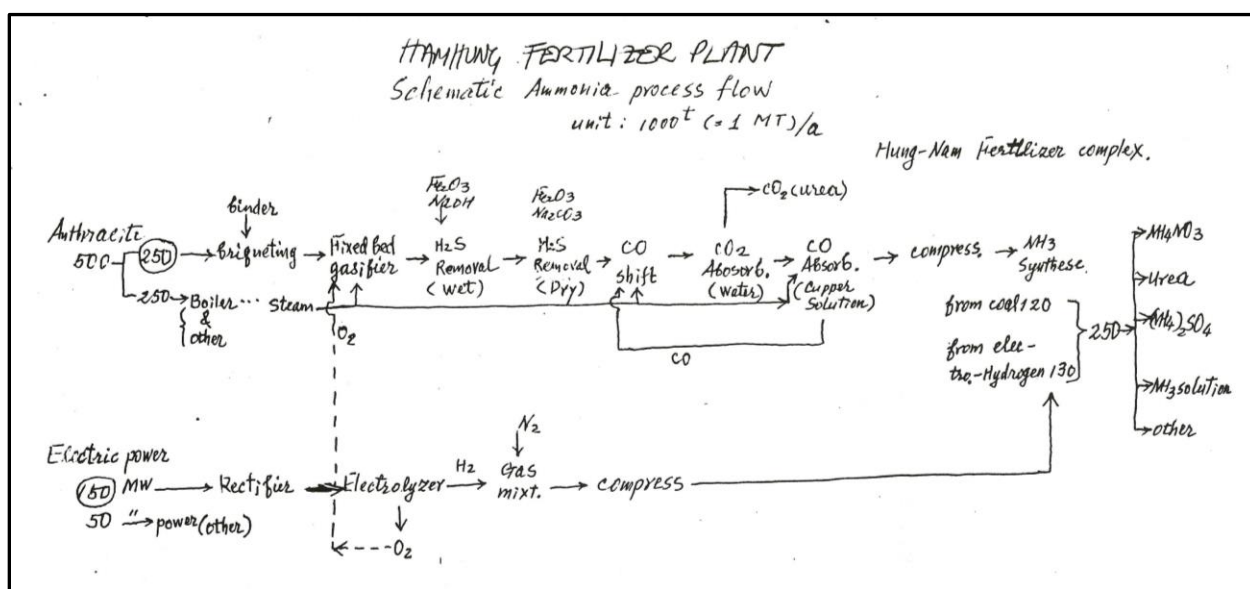 HAMHUNG FERTILIZER PLANT
Schematic Ammonia process flow
unit: 1000t (=1 MT)/a
Hung-Nam Fertilizer complex.
Anthracite
500
250
250
binder
briqueting
Boiler...
&
other
Steam
Fixed bed
gasifier
O2
Fe2O3
NaOH
H2S
Removal
(wet)
Fe2O3
Na2CO3
H2S
Removal
(Dry)
CO
Shift
CO2 (urea)
CO2
Abosorb.
(Water)
CO
Absorb.
(Cupper
Solution)
CO
compress.
NH3
Synthese.
from coal 120
from elec-
tro.-Hydrogen 130
250
NH4NO3
Urea
(NH4)2SO4
NH3 solution
other
Electric power
150 MW
50 " power (other)
Rectifier
Electrolyzer
O2
H2
N2
Gas
mixt.
compress